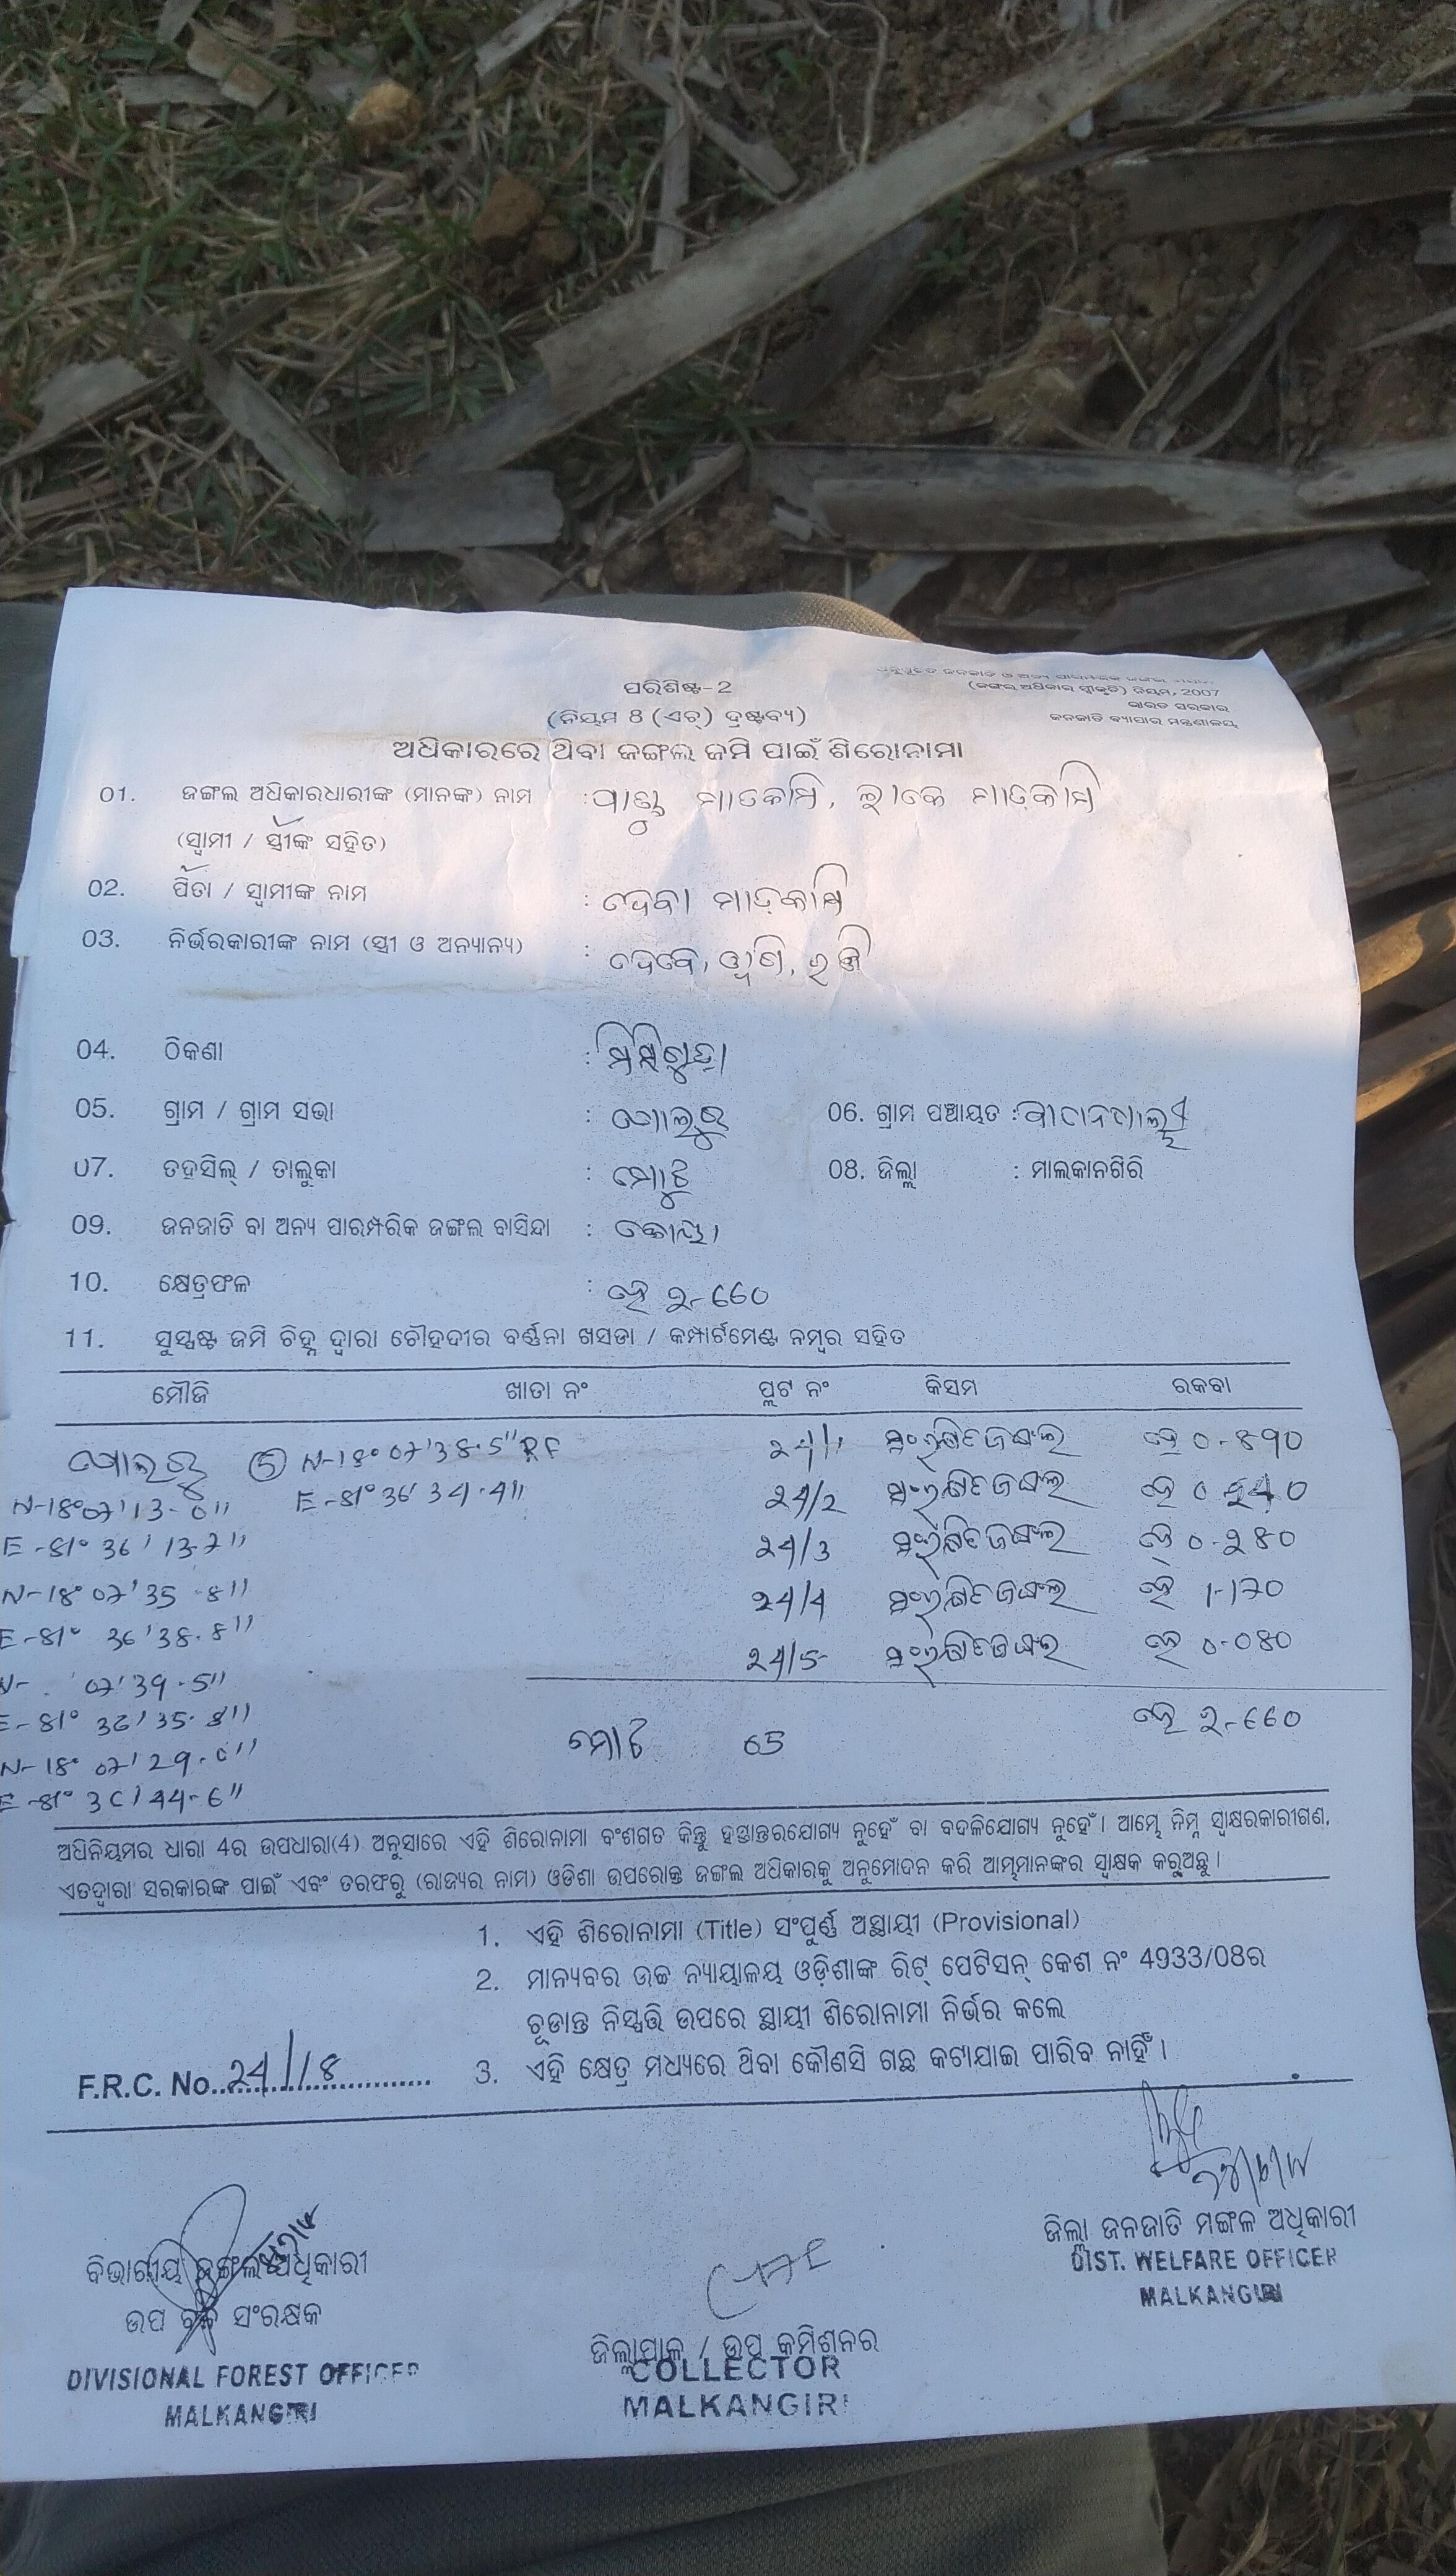 (ଜଙ୍ଗଲ ଅଧିକାର ସ୍ୱୀକୃତି) ନିୟମ, 2007
ଭାରତ ସରକାର
ଜନଜାତି ବ୍ୟାପାର ମନ୍ତ୍ରଣାଳୟ
ପରିଶିଷ୍ଟ-2
(ନିୟମ 8 (ଏଚ୍) ଦ୍ରଷ୍ଟବ୍ୟ)
ଅଧିକାରରେ ଥିବା ଜଙ୍ଗଲ ଜମି ପାଇଁ ଶିରୋନାମା
01. ଜଙ୍ଗଲ ଅଧିକାରଧାରୀଙ୍କ (ମାନଙ୍କ) ନାମ : ମାଡକାମି, ମାଡ଼କାମି
(ସ୍ୱାମୀ / ସ୍ତ୍ରୀଙ୍କ ସହିତ)
02. ପିତା / ସ୍ୱାମୀଙ୍କ ନାମ : ଦେବା ମାଡ଼କାମି
03. ନିର୍ଭରକାରୀଙ୍କ ନାମ (ସ୍ତ୍ରୀ ଓ ଅନ୍ୟାନ୍ୟ) : ଦେବେ,
04. ଠିକଣା :
05. ଗ୍ରାମ / ଗ୍ରାମ ସଭା : 06. ଗ୍ରାମ ପଞ୍ଚାୟତ :
07. ତହସିଲ୍ / ତାଲୁକା : ମୋଟୁ 08. ଜିଲ୍ଲା : ମାଲକାନଗିରି
09. ଜନଜାତି ବା ଅନ୍ୟ ପାରମ୍ପରିକ ଜଙ୍ଗଲ ବାସିନ୍ଦା : କୋୟା
10. କ୍ଷେତ୍ରଫଳ : ହେ ୨-୬୬୦
11. ସୁସ୍ପଷ୍ଟ ଜମି ଚିହ୍ନ ଦ୍ୱାରା ଚୌହଦୀର ବର୍ଣ୍ଣନା ଖସଡା / କମ୍ପାର୍ଟମେଣ୍ଟ ନମ୍ବର ସହିତ
ମୌଜି ଖାତା ନଂ ପ୍ଲଟ ନଂ କିସମ ରକବା
⑤ N-18° 07'38.5" RF 24/1 ସଂରକ୍ଷିତ ଜଙ୍ଗଲ ହେ 0-890
N-18°07'13-0" E-81° 36' 34.4" 24/2 ସଂରକ୍ଷିତ ଜଙ୍ଗଲ ହେ 0-240
E-81° 36' 13-7" 24/3 ସଂରକ୍ଷିତ ଜଙ୍ଗଲ ହେ 0-280
N-18° 07'35.8" 24/4 ସଂରକ୍ଷିତ ଜଙ୍ଗଲ ହେ 1-170
E-81° 36'38.8" 24/5 ସଂରକ୍ଷିତ ଜଙ୍ଗଲ ହେ 0-080
N- 07'39.5"
E-81° 36'35.8" ମୋଟ 05 ହେ ୨-୬୬୦
N-18° 07'29.0"
E-81° 36'44-6"
ଅଧିନିୟମର ଧାରା 4ର ଉପଧାରା(4) ଅନୁସାରେ ଏହି ଶିରୋନାମା ବଂଶଗତ କିନ୍ତୁ ହସ୍ତାନ୍ତରଯୋଗ୍ୟ ନୁହେଁ ବା ବଦଳିଯୋଗ୍ୟ ନୁହେଁ। ଆମ୍ଭେ ନିମ୍ନ ସ୍ୱାକ୍ଷରକାରୀଗଣ,
ଏତଦ୍ୱାରା ସରକାରଙ୍କ ପାଇଁ ଏବଂ ତରଫରୁ (ରାଜ୍ୟର ନାମ) ଓଡିଶା ଉପରୋକ୍ତ ଜଙ୍ଗଲ ଅଧିକାରକୁ ଅନୁମୋଦନ କରି ଆତ୍ମମାନଙ୍କର ସ୍ୱାକ୍ଷକ କରୁଅଛୁ।
1. ଏହି ଶିରୋନାମା (Title) ସଂପୂର୍ଣ୍ଣ ଅସ୍ଥାୟୀ (Provisional)
2. ମାନ୍ୟବର ଉଚ୍ଚ ନ୍ୟାୟାଳୟ ଓଡ଼ିଶାଙ୍କ ରିଟ୍ ପେଟିସନ୍ କେଶ ନଂ 4933/08ର
ଚୂଡାନ୍ତ ନିସ୍ପତ୍ତି ଉପରେ ସ୍ଥାୟୀ ଶିରୋନାମା ନିର୍ଭର କଲେ
3. ଏହି କ୍ଷେତ୍ର ମଧ୍ୟରେ ଥିବା କୌଣସି ଗଛ କଟାଯାଇ ପାରିବ ନାହିଁ।
F.R.C. No. 24/18
ଜିଲ୍ଲା ଜନଜାତି ମଙ୍ଗଳ ଅଧିକାରୀ
DIST. WELFARE OFFICER
MALKANGIRI
ବିଭାଗୀୟ ଜଙ୍ଗଲ ଅଧିକାରୀ
ଉପ ବନ ସଂରକ୍ଷକ
DIVISIONAL FOREST OFFICER
MALKANGIRI
ଜିଲ୍ଲାପାଳ / ଉପ କମିଶନର
COLLECTOR
MALKANGIRI